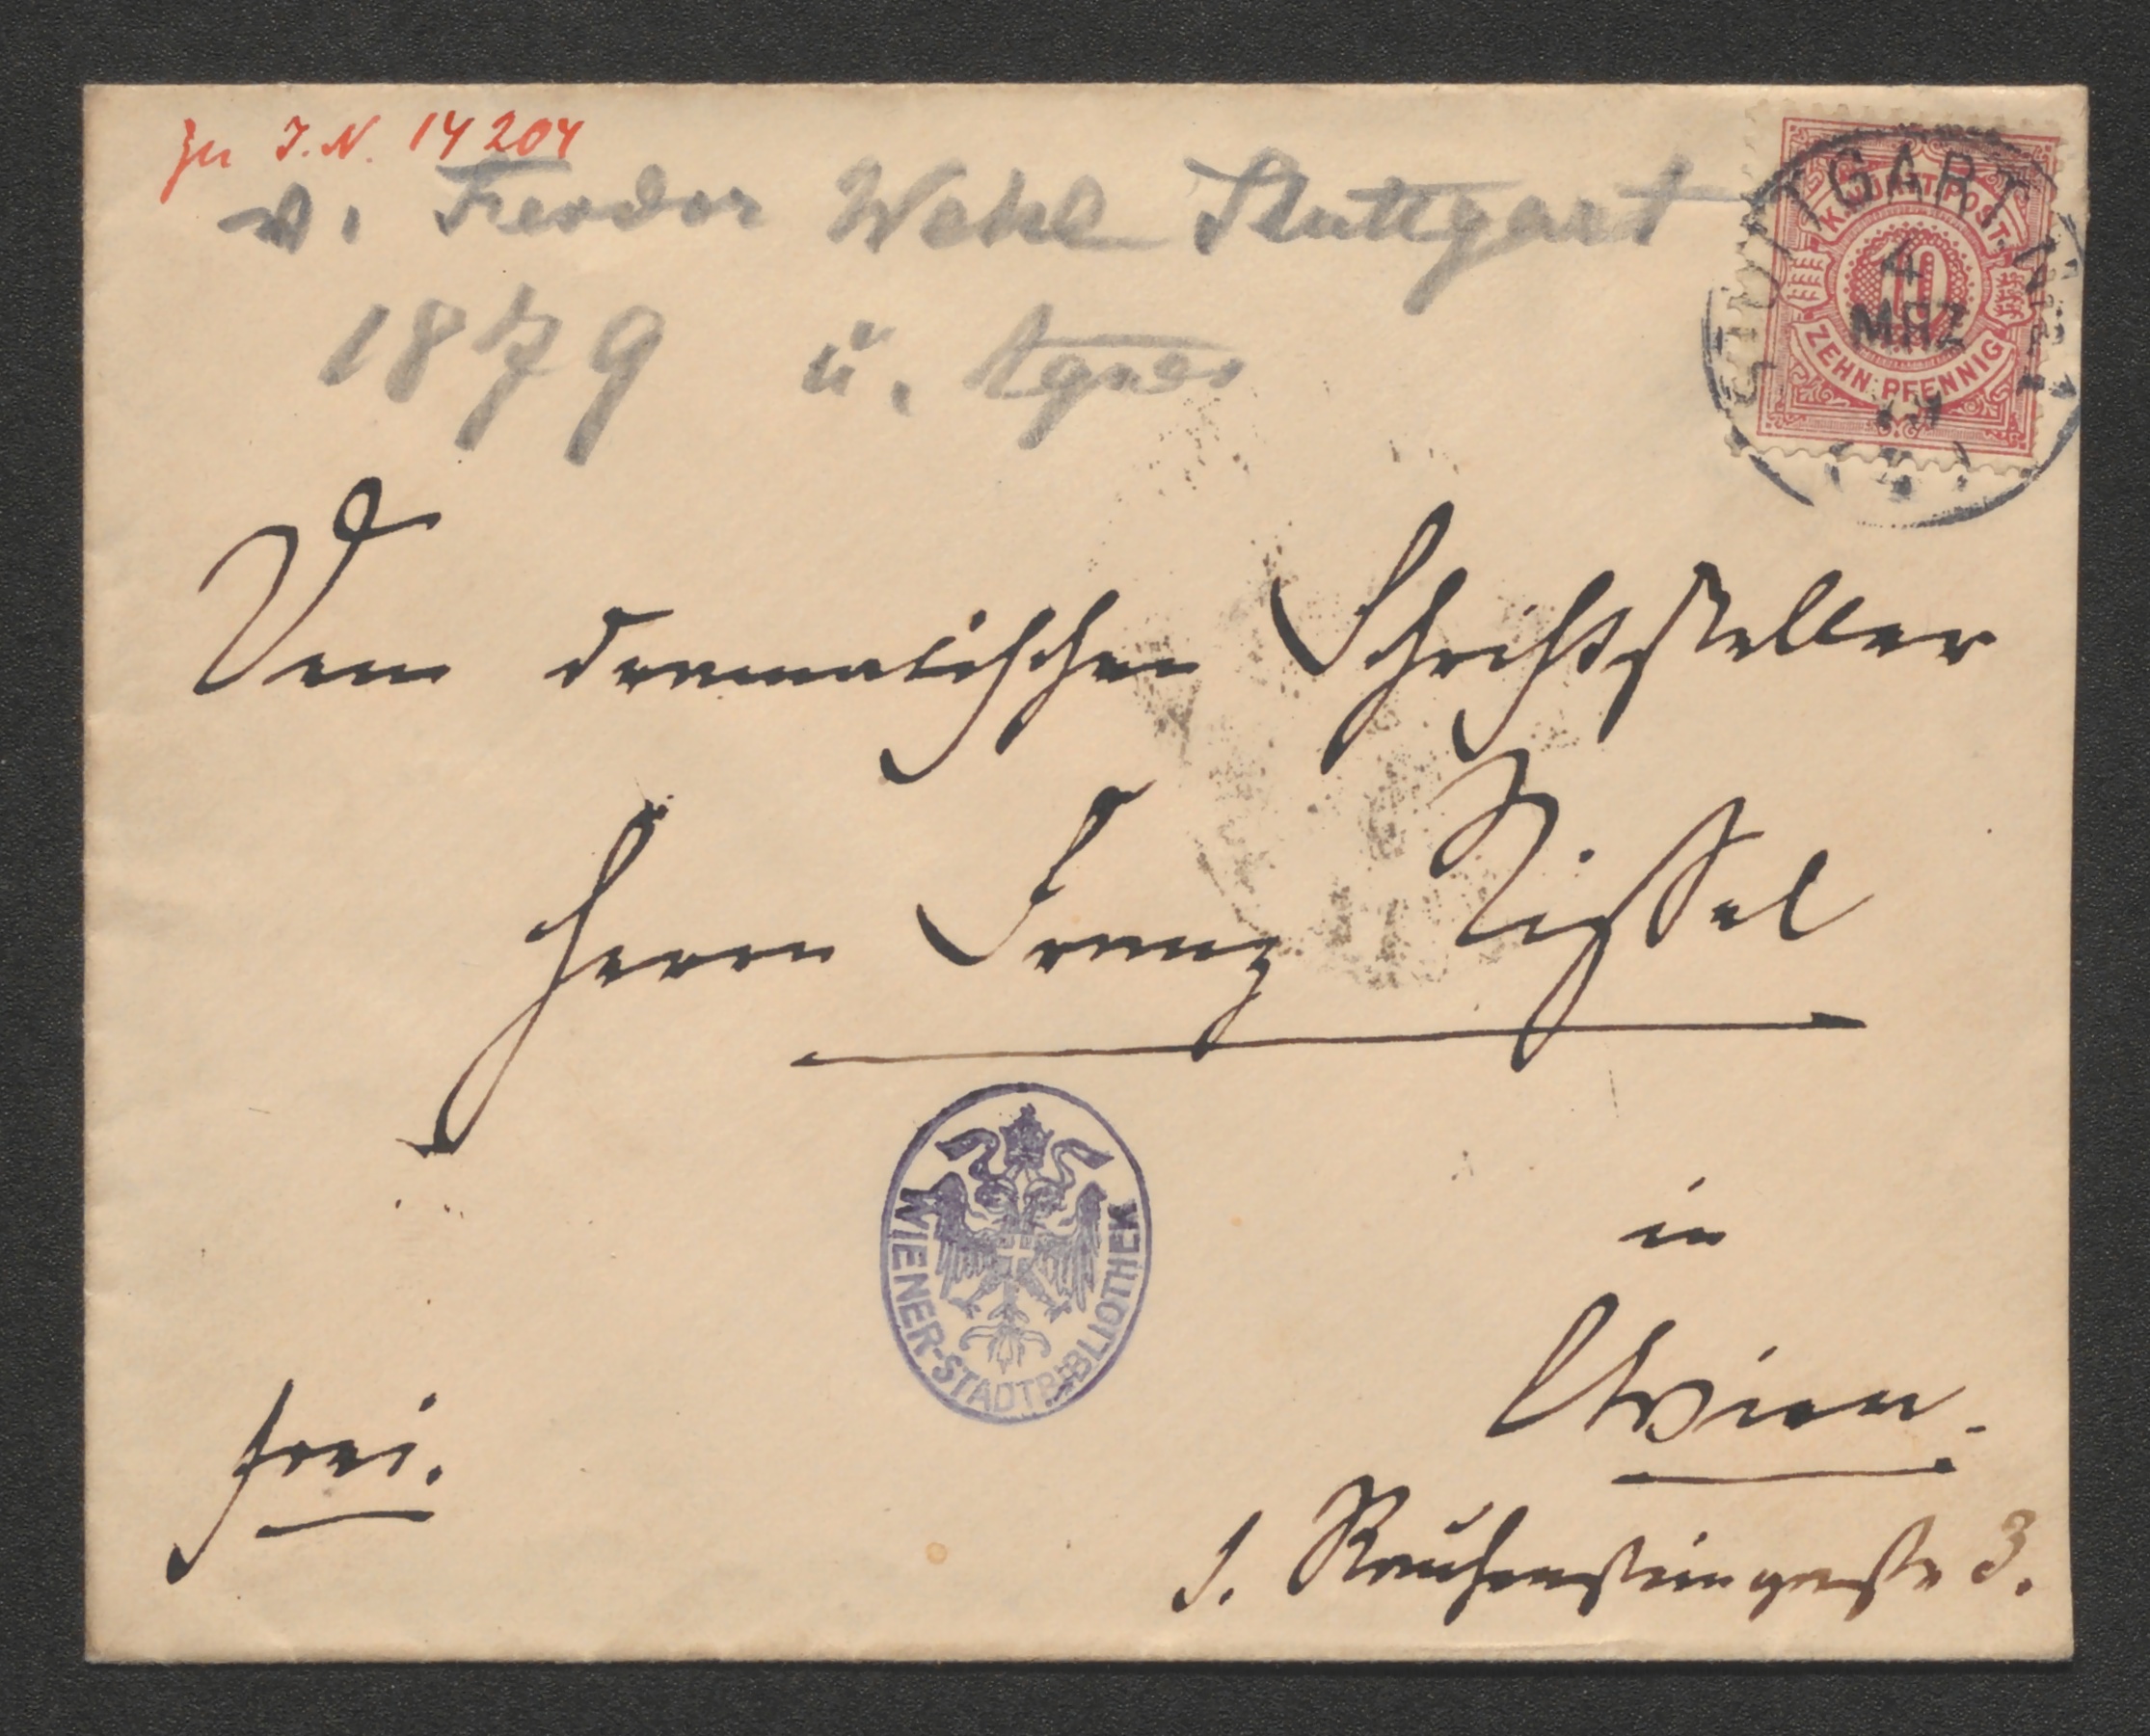 zu I.N. 14204
v. Feodor Wehl Stuttgart
1879 u. Agnes
STUTTGART
K. WÜRTT. POST.
4
MRZ
10
ZEHN PFENNIG
Dem dramatischen Schriftsteller
Herrn Franz Nissel
WIENER-STADTBIBLIOTHEK
in
Wien.
frei.
I. Rauhensteingasse 3.